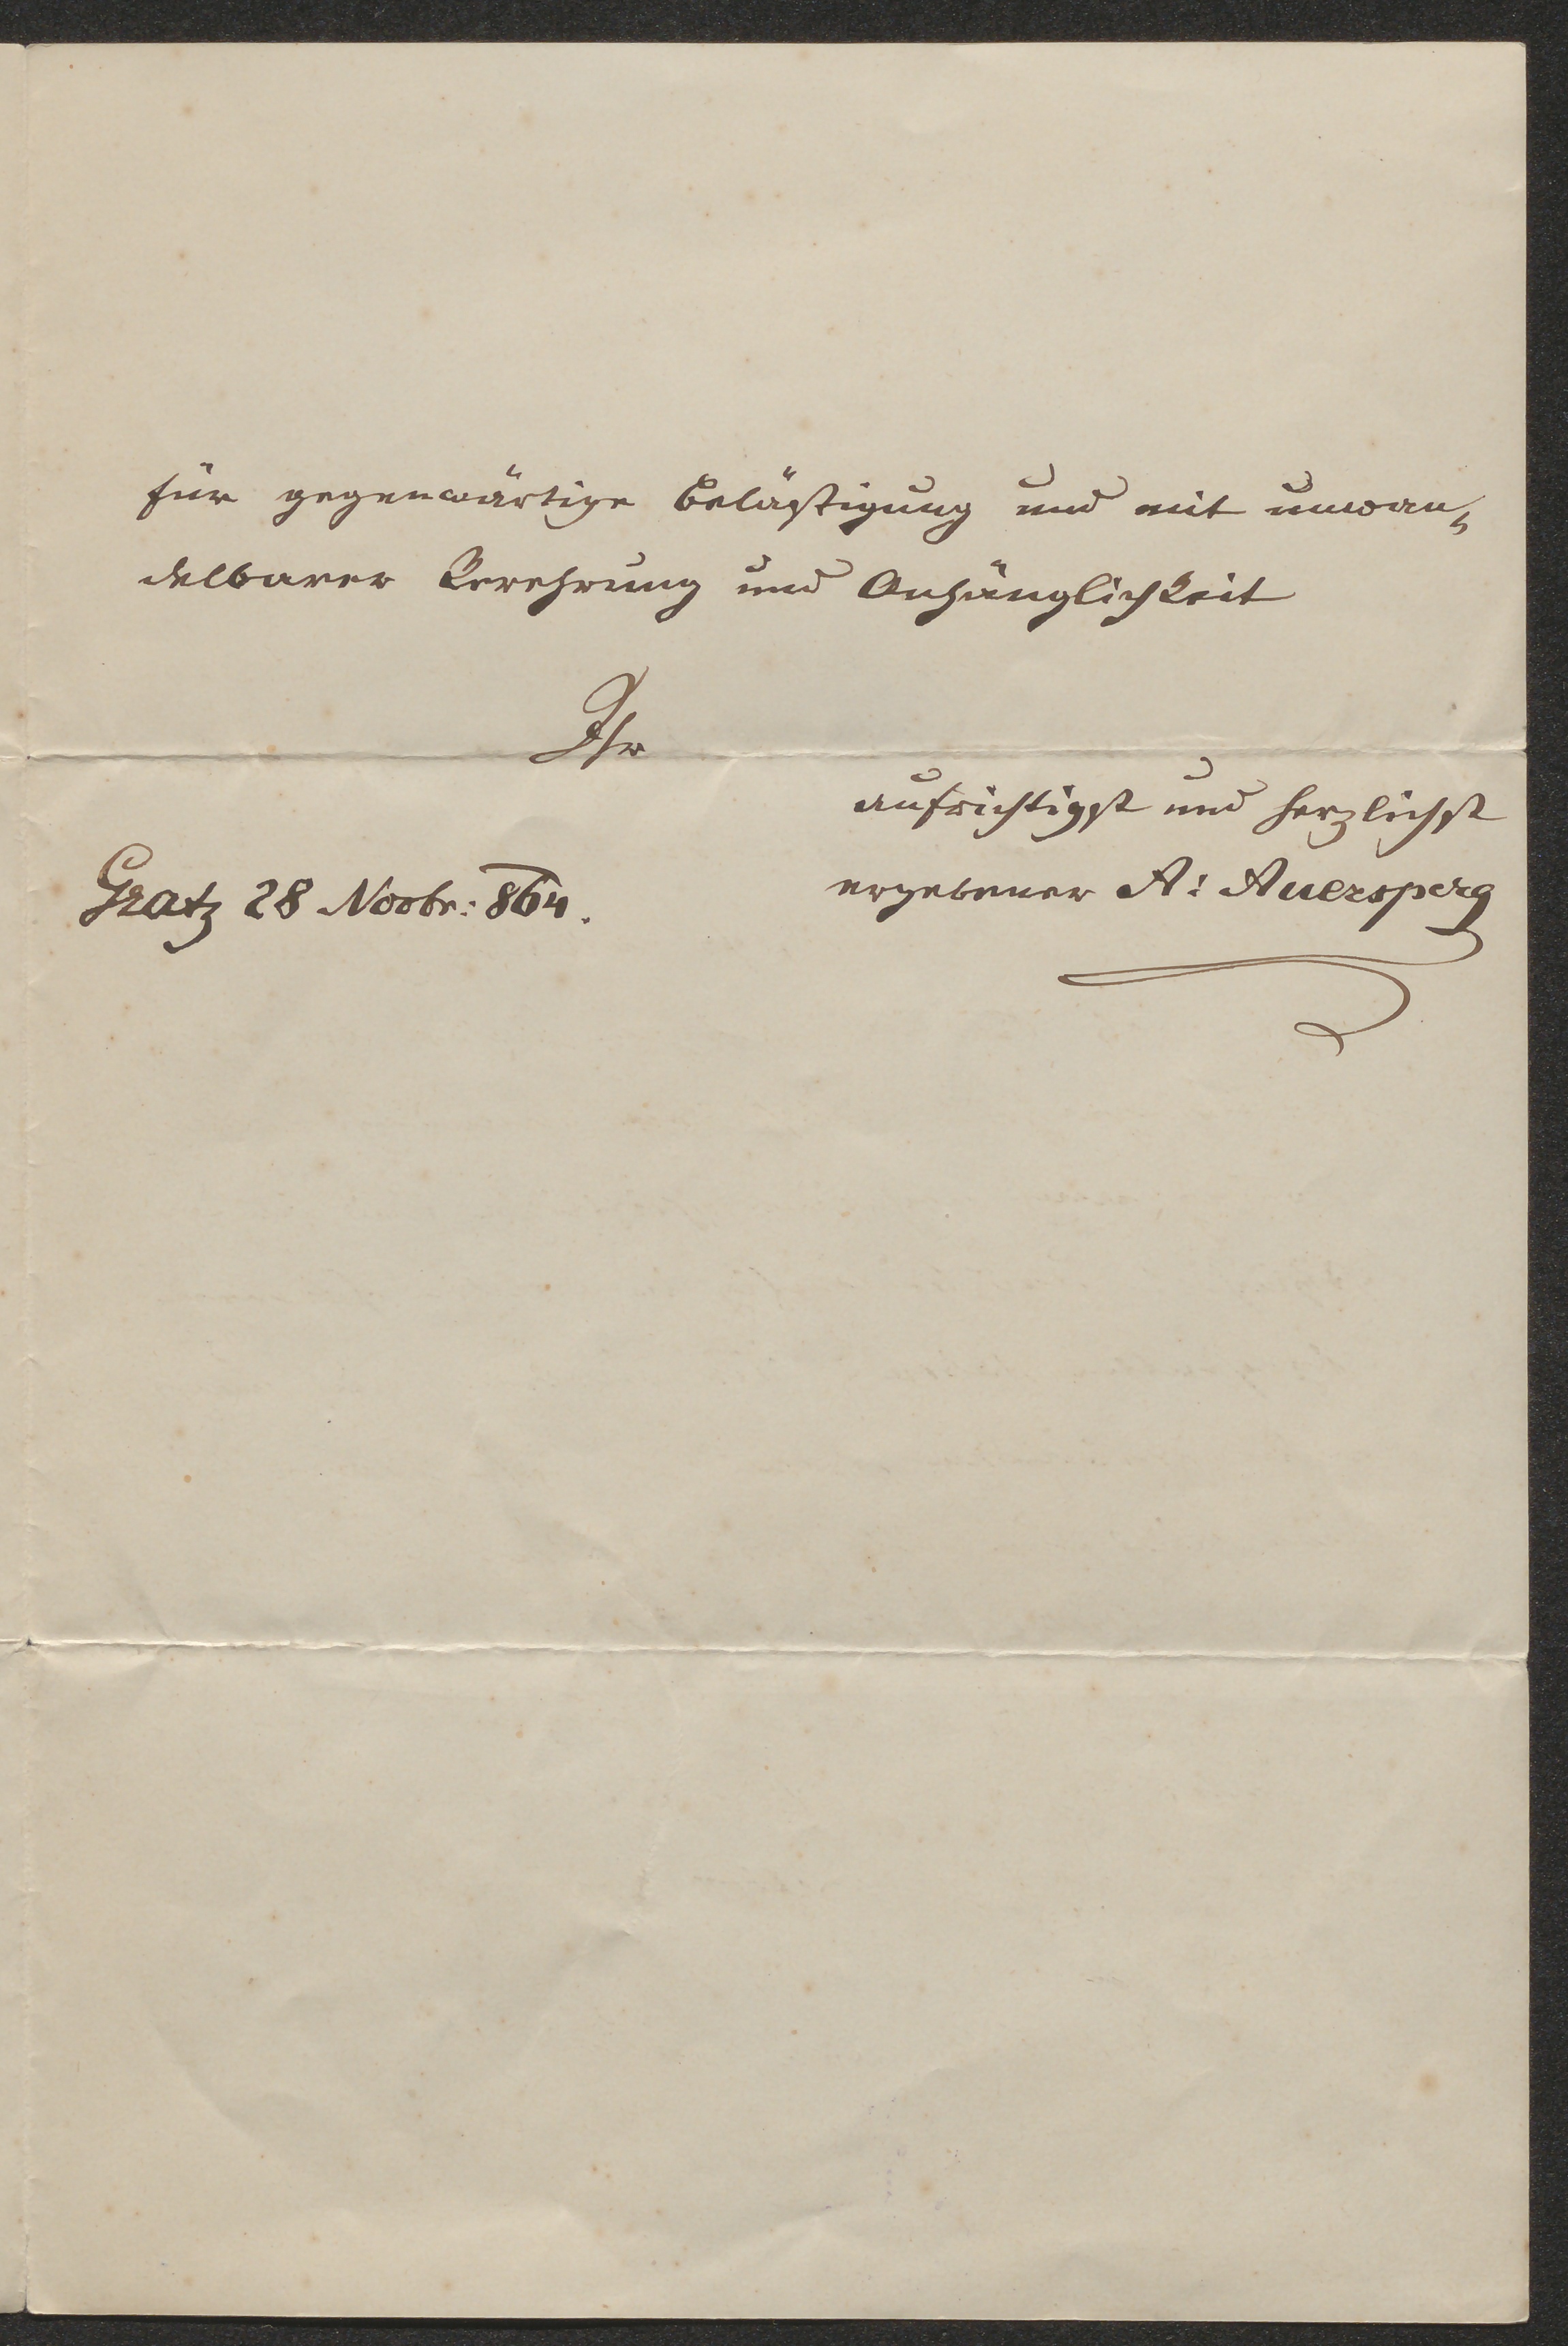 für gegenwärtige Belästigung und mit unwan-
delbarer Verehrung und Anhänglichkeit
Ihr
aufrichtigst und herzlichst
ergebener A: Auersperg
Gratz 28 Novbr: 864.